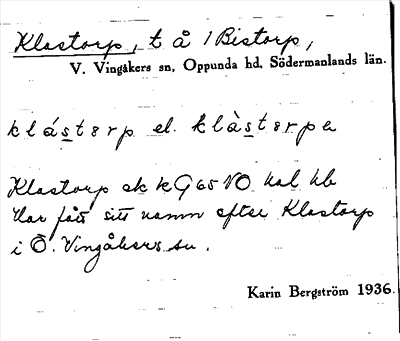 Klastorp, t å / Bistorp,
V. Vingåkers sn, Oppunda hd, Södermanlands län.
klástərp el. klàstərpa
Klastorp ek k G 65 NO kal bl
Har fått sitt namn efter Klastorp
i Ö. Vingåkers sn.
Karin Bergström 1936.